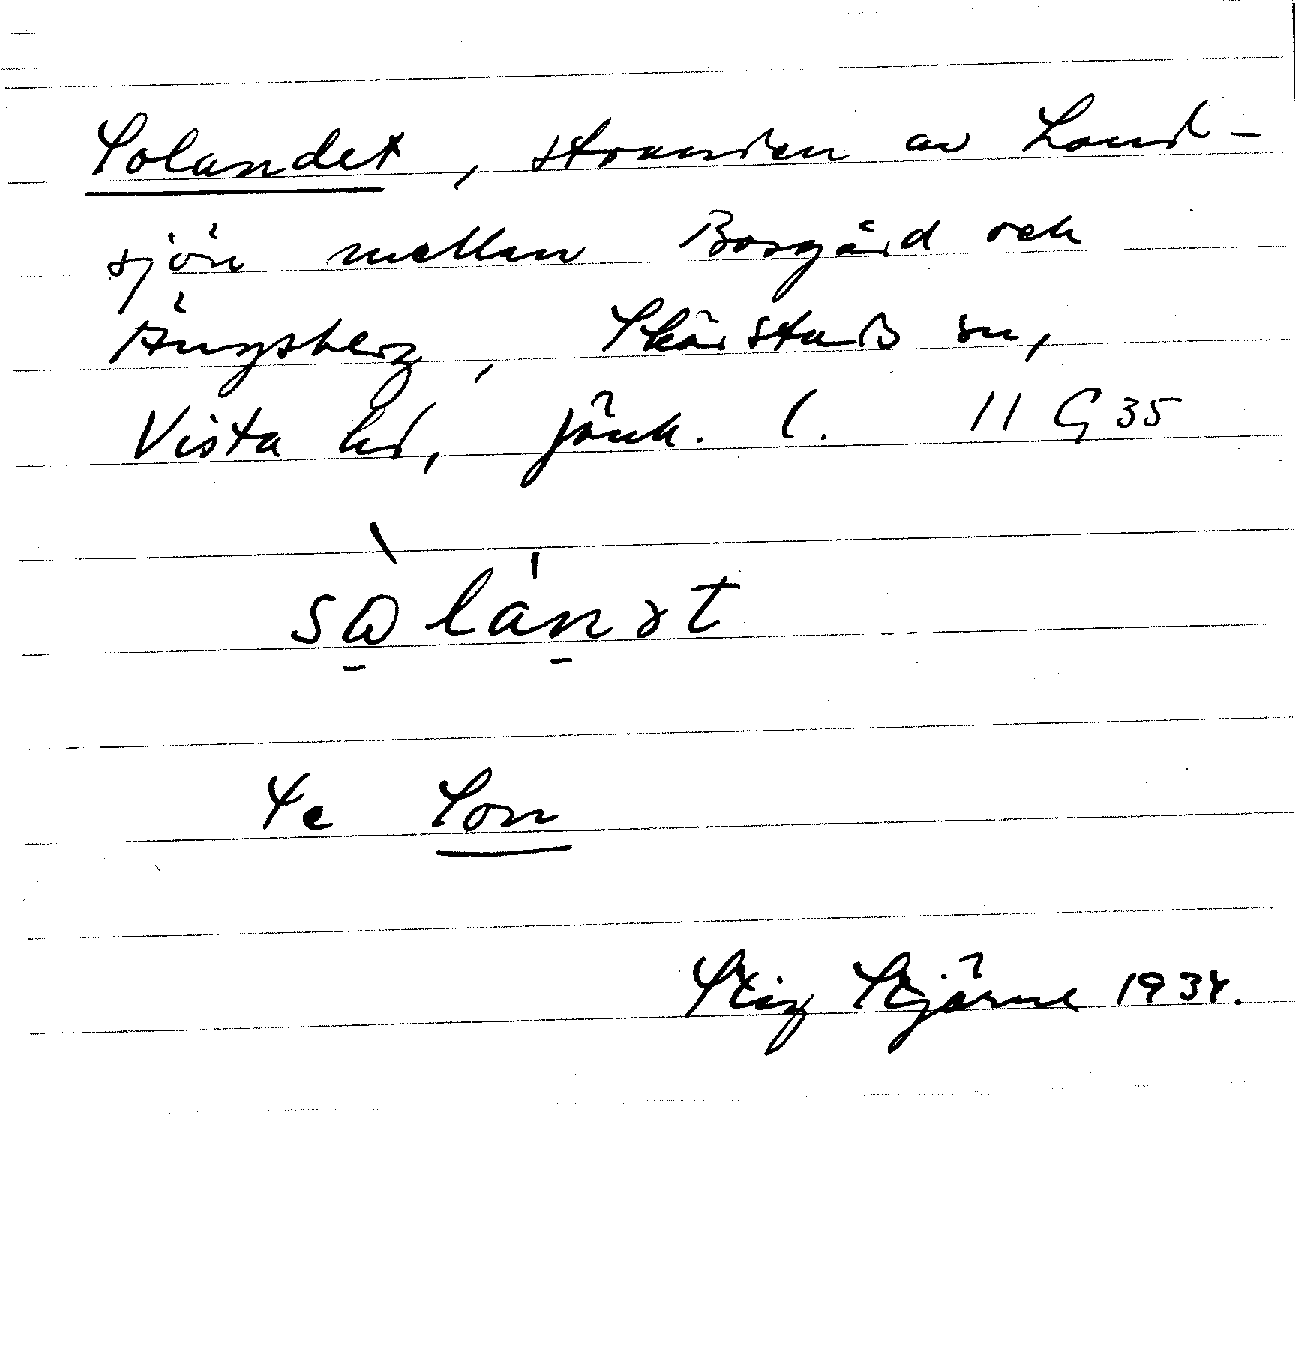 Solandet, stranden av Land-
sjön mellan Borgård och
Ängsberg, Skärstads sn,
Vista hd, Jönk. l. 11 G 35
Se Son
Stig Stjärne 1934.